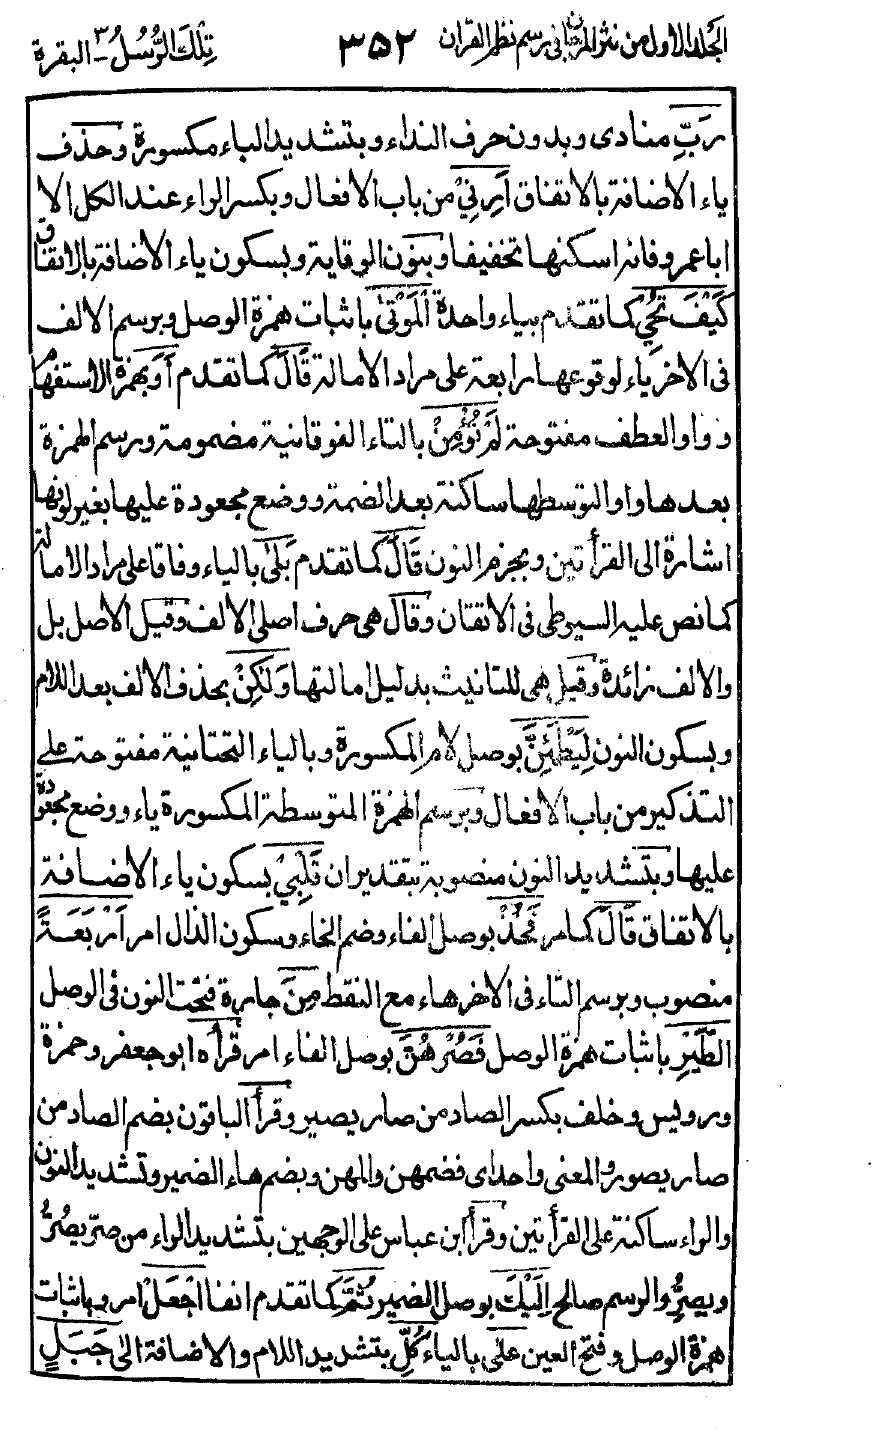 الجلد الاول من نثر المرجان فى رسم نظم القران ٣٥٢ تِلْكَ الرُّسُلُ ٣ - البقرة
رَبِّ منادى وبدون حرف النداء وبتشديد الباء مكسورة وحذف
ياء الاضافة بالاتفاق اَرِنِيْ من باب الافعال وبكسر الراء عند الكل الا
ابا عمرو فانه اسكنها تخفيفا وبنون الوقاية وبسكون ياء الاضافة بالاتفاق
كَيْفَ تُحْيِ كما تقدم بياء واحدة الْمَوْتٰى باثبات همزة الوصل وبرسم الالف
فى الاخر ياء لوقوعها رابعة على مراد الامالة قَالَ كما تقدم أَوَ بهمزة الاستفهام
وواو العطف مفتوحة لَمْ تُؤْمِنْ بالتاء الفوقانية مضمومة ورسم الهمزة
بعدها واوا لتوسطها ساكنة بعد الضمة ووضع مجعودة عليها بغير لونها
اشارة الى القرأتين وبجزم النون قَالَ كما تقدم بَلٰى بالياء وفاقا على مراد الامالة
كما نص عليه السيوطى فى الاتقان وقال هى حرف اصلى الالف وقيل الاصل بل
والالف زائدة وقيل هى للتانيث بدليل امالتها وَلٰكِنْ بحذف الالف بعد اللام
وبسكون النون لِيَطْمَئِنَّ بوصل لام المكسورة وبالياء التحتانية مفتوحة على
التذكير من باب الافعال وبرسم الهمزة المتوسطة المكسورة ياء ووضع مجعودة
عليها وبتشديد النون منصوبة بتقدير ان قَلْبِيْ بسكون ياء الاضافة
بالاتفاق قَالَ كما مر فَخُذْ بوصل الفاء وضم الخاء وسكون الذال امر اَرْبَعَةً
منصوب وبرسم التاء فى الاخر هاء مع النقط مِنَ جارة فتحت النون فى الوصل
الطَّيْرِ باثبات همزة الوصل فَصُرْهُنَّ بوصل الفاء امر قرأه ابو جعفر وحمزة
ورويس وخلف بكسر الصاد من صار يصير وقرأ الباقون بضم الصاد من
صار يصور والمعنى واحد اى فضمهن واملهن وبضم هاء الضمير وتشديد النون
والراء ساكنة على القرأتين وقرأ ابن عباس على الوجهين بتشديد الراء من صرّ يصُرُّ
ويصِرُّ والرسم صالح اِلَيْكَ بوصل الضمير ثُمَّ كما تقدم انفا اجْعَلْ امر وباثبات
همزة الوصل وفتح العين عَلٰى بالياء كُلِّ بتشديد اللام والاضافة الى جَبَلٍ